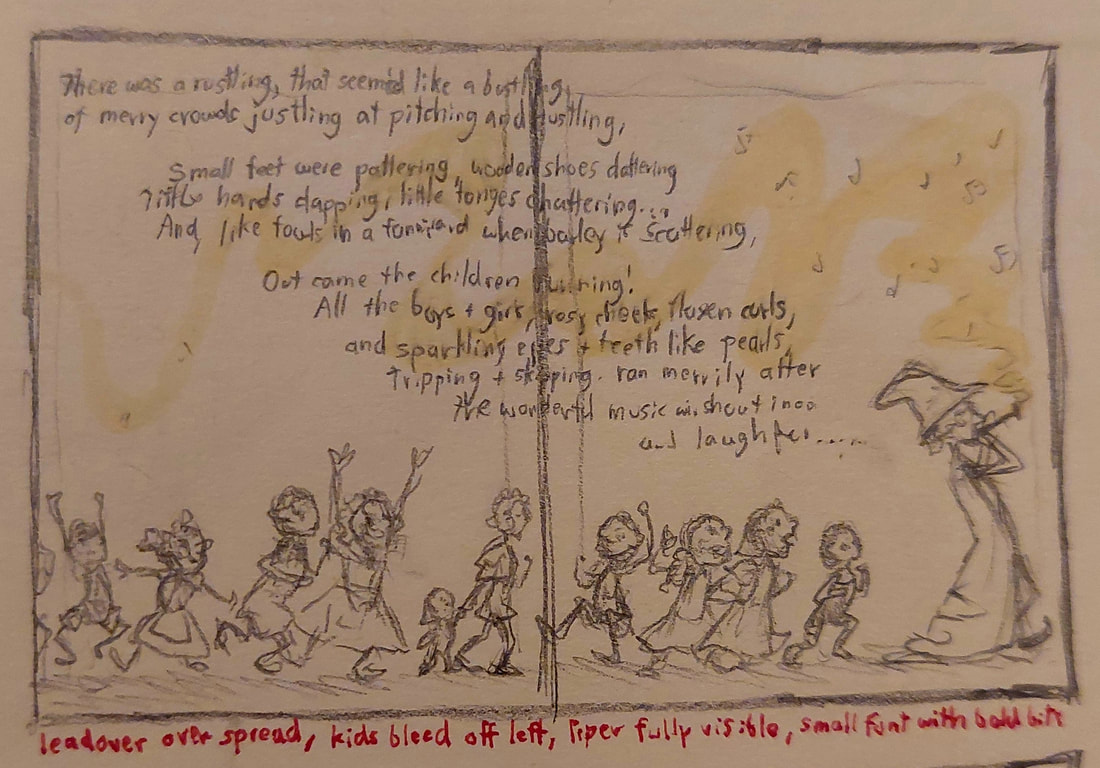 There was a rustling, that seemed like a bustling,
of merry crowds justling at pitching and hustling,
Small feet were pattering, wooden shoes clattering
little hands clapping, little tonges chattering...
And, like fowls in a farmyard when barley is scattering,
Out came the children running!
All the boys + girls, rosy cheeks, flaxen curls,
and sparkling eyes + teeth like pearls,
Tripping + skipping. ran merrily after
the wonderful music w. shouting
and laughter.....
leadover over spread, kids bleed off left, Piper fully visible, small font with bold bits